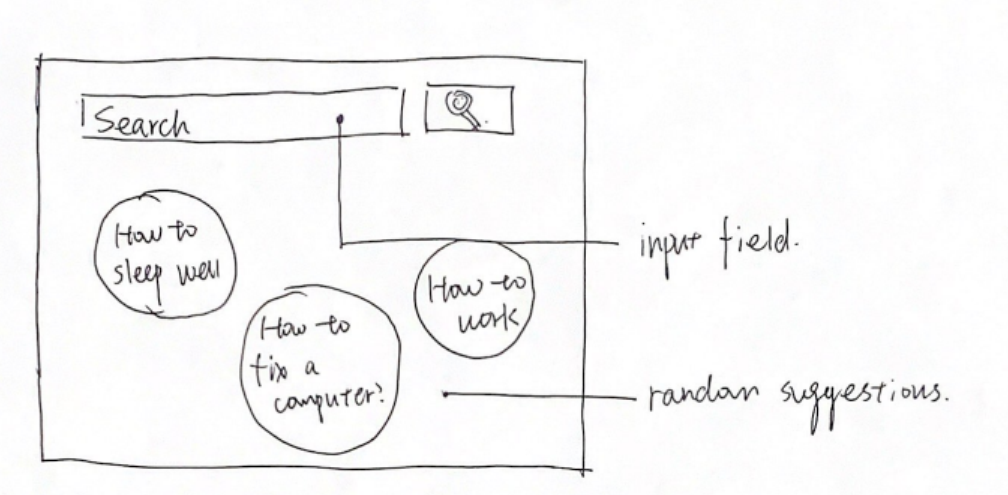 Search
How to
sleep well
How to
fix a
computer?
How to
work
input field.
random suggestions.